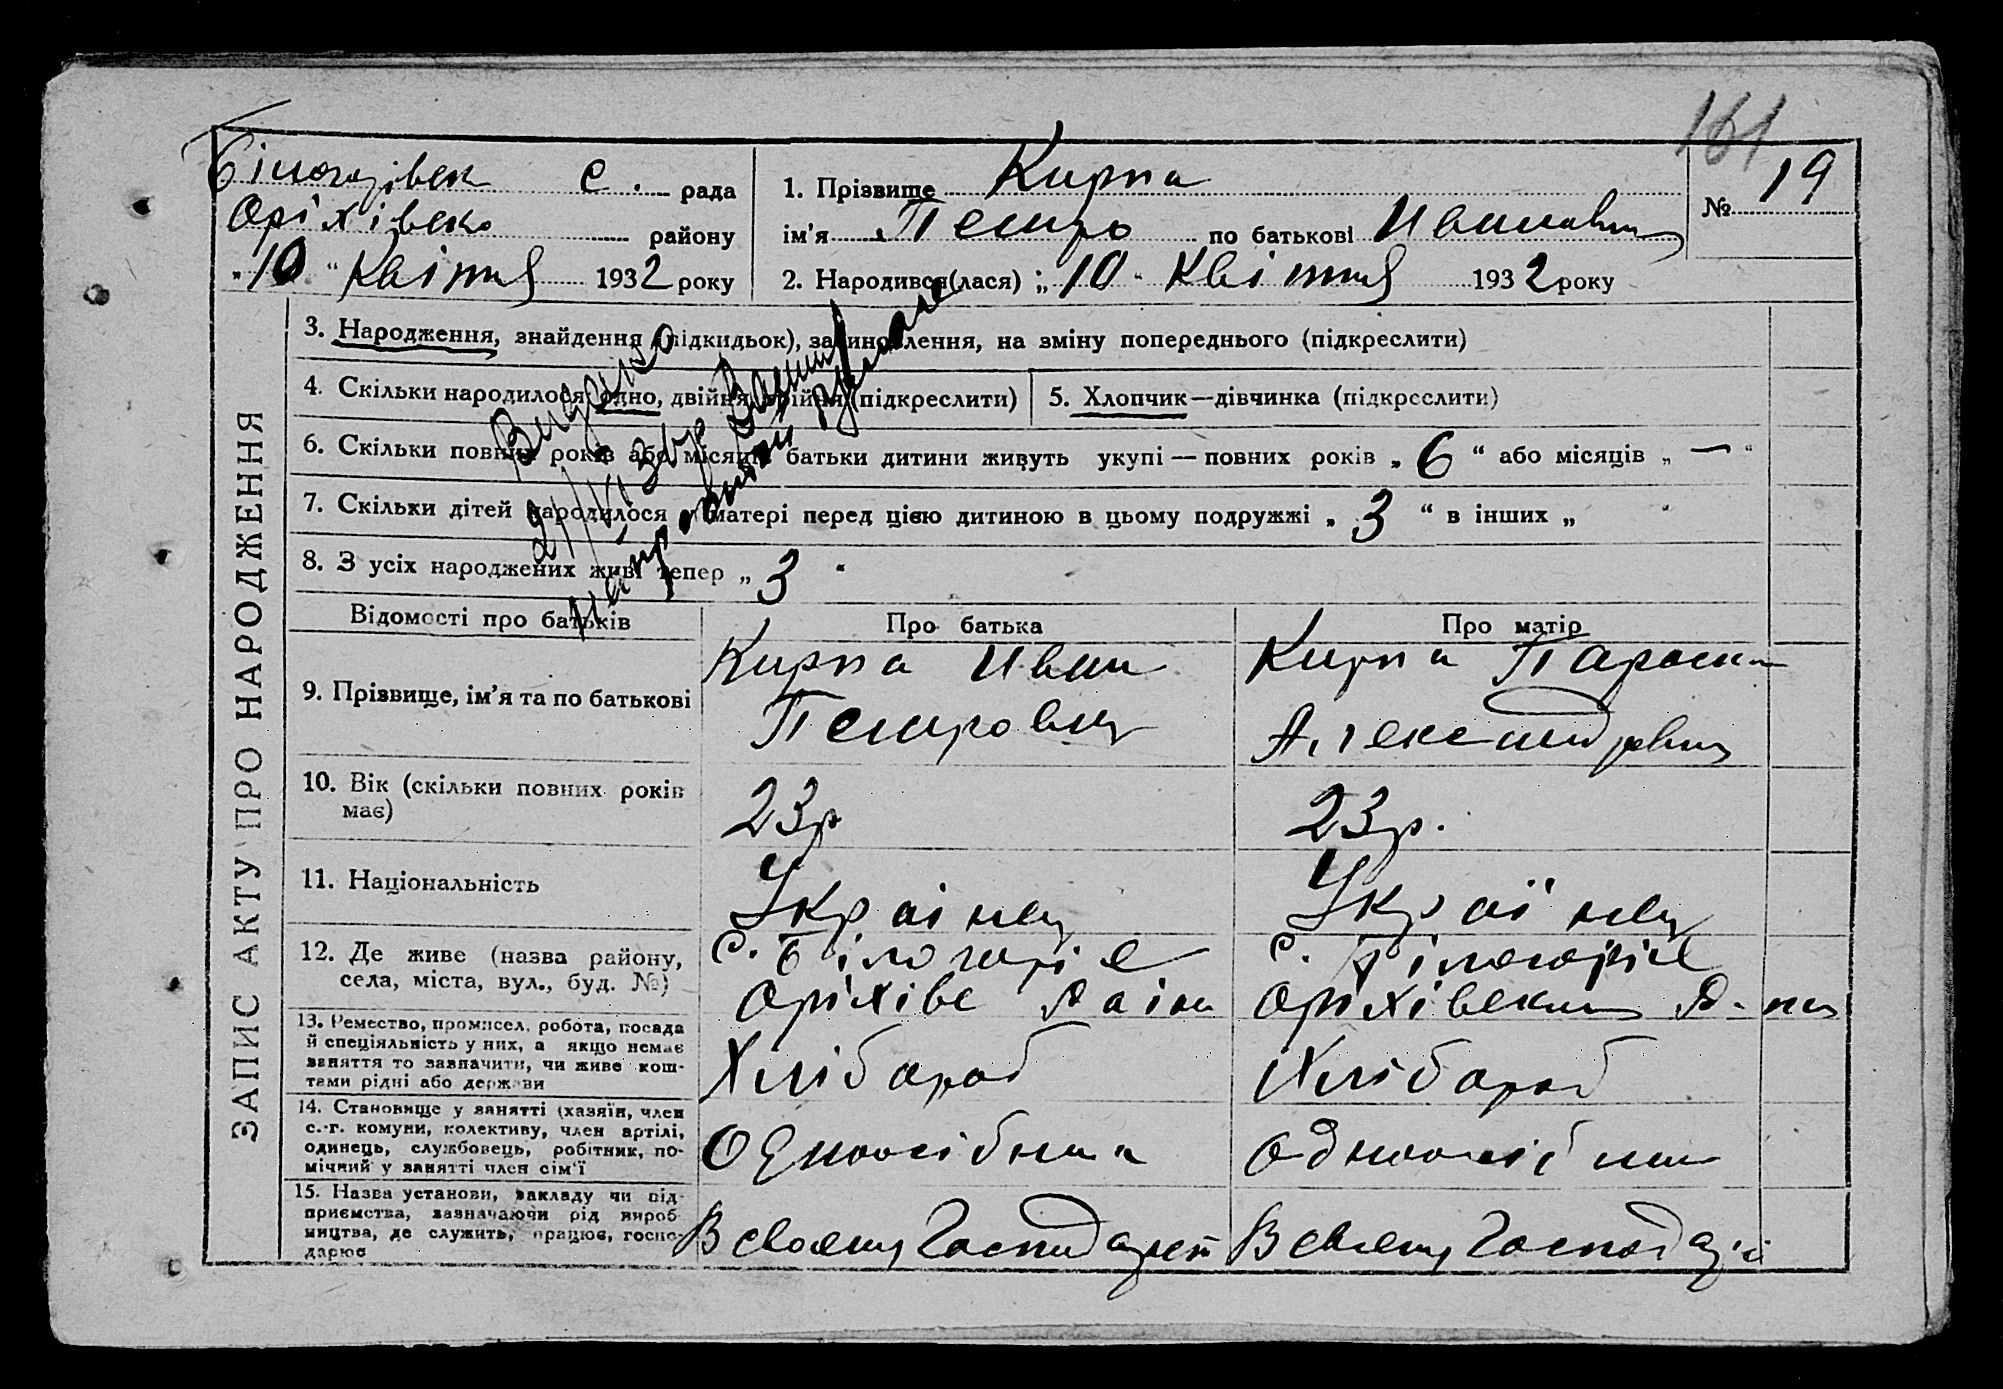 161
Білогорівск с. рада
Оріхівсько району
„10“ Квітня 1932 року
1. Прізвище Кирпа
ім'я Петро по батькові Иванович
2. Народився(лася) „10“ Квітня 1932 року
№ 19
ЗАПИС АКТУ ПРО НАРОДЖЕННЯ
3. Народження, знайдення (підкидьок), засиновлення, на зміну попереднього (підкреслити)
4. Скільки народилося: одно, двійня, трійня (підкреслити)
5. Хлопчик—дівчинка (підкреслити)
6. Скільки повних років або місяців батьки дитини живуть укупі — повних років „6“ або місяців „—“
7. Скільки дітей народилося у матері перед цією дитиною в цьому подружжі „3“ в інших „ “
8. З усіх народжених живі тепер „3“
Видано
Відомості про батьків
Про батька
Про матір
9. Прізвище, ім'я та по батькові
Кирпа Иван
Петрович
Кирпа Параска
Александровна
10. Вік (скільки повних років
має)
23р
23р.
11. Національність
Украінец
Українец
12. Де живе (назва району,
села, міста, вул., буд. №)
с. Білогоріє
Оріхівс Раіон
с. Білогоріє
Оріхівськ Р-ну
13. Ремество, промисел, робота, посада
й спеціяльність у них, а якщо немає
заняття то зазначити, чи живе кош-
тами рідні або держави
Хлібороб
Хлібороб
14. Становище у занятті (хазяїн, член
с.-г. комуни, колективу, член артілі,
одинець, службовець, робітник, по-
мічний у занятті член сім'ї
Одноосібник
одноосібник
15. Назва установи, закладу чи під-
приємства, зазначаючи рід вироб-
ництва, де служить, працює, госпо-
дарює
В своему Господарст
В своему Господар